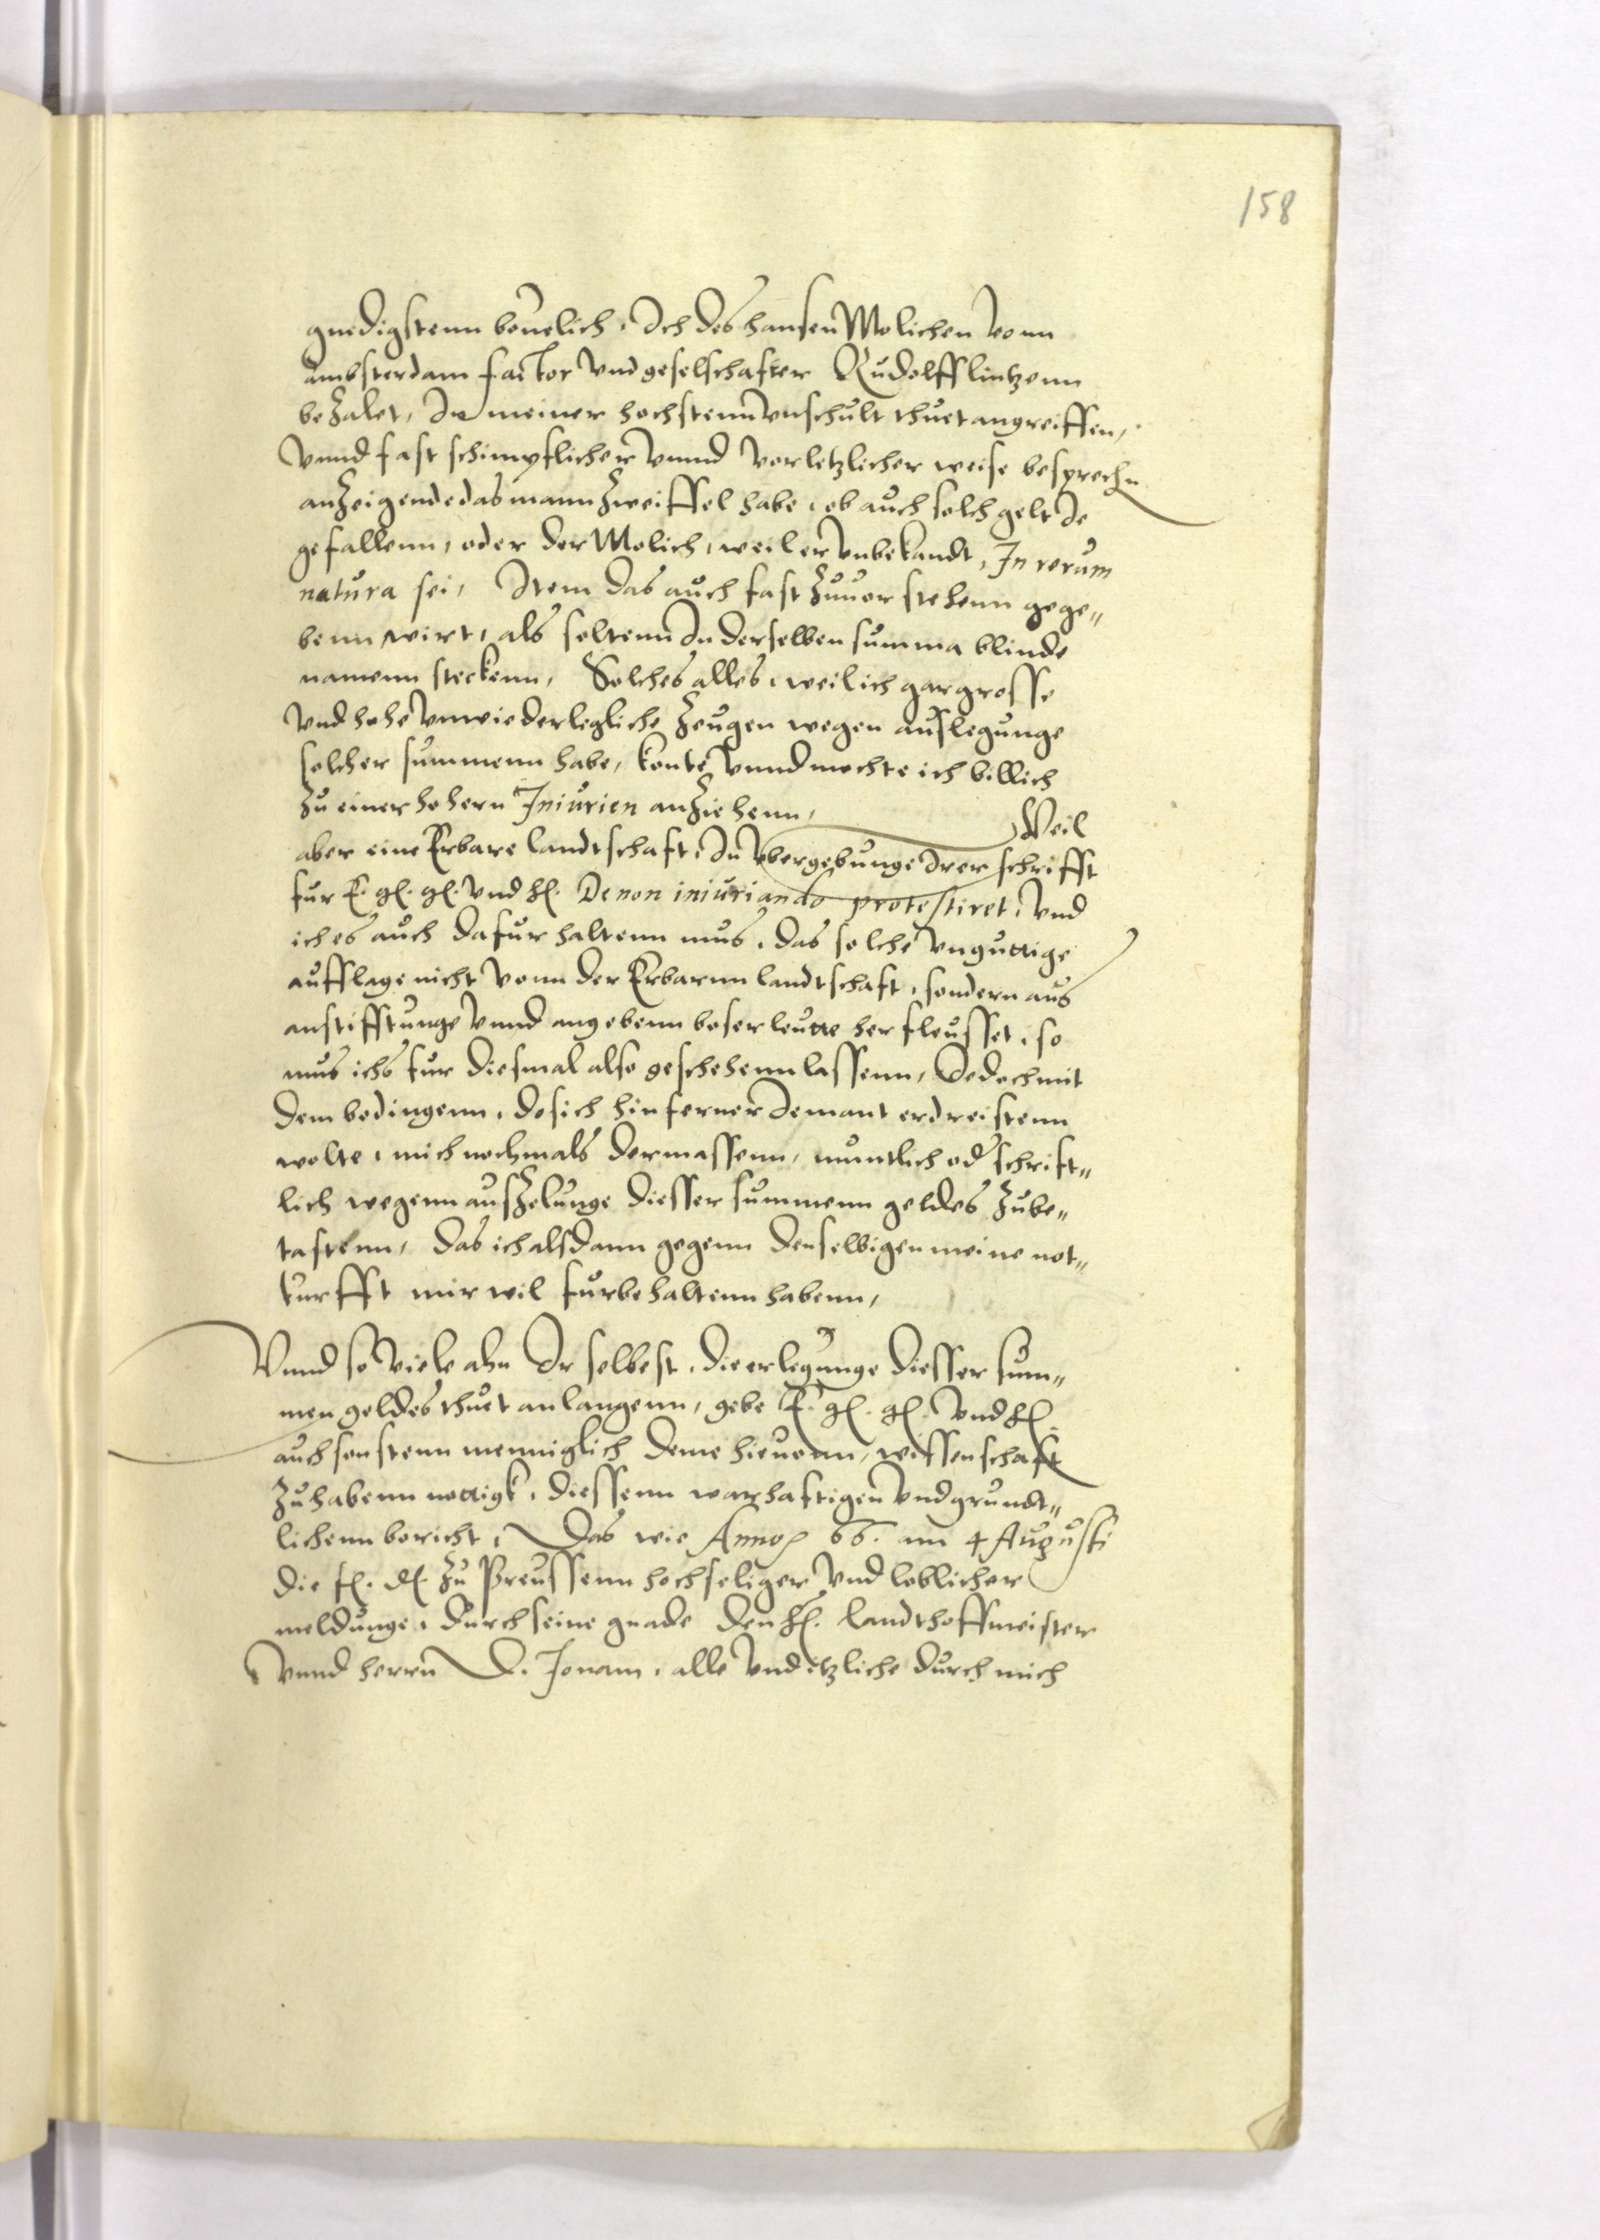 158
gnedigstenn beuelich, Ich des hansen Molichen vonn
ambsterdam factor vnd geselschafter Rudolff lintzenn
bezalet, In meiner hochstenn vnschult thuet angreiffen,
Vnnd fast schimpflicher vnnd vorletzlicher weise besprechn
anzeigende das mann zweiffel habe, ob auch solch gelt Je
gefallenn, oder der Molich, weil er vnbekandt, In rerum
natura sei, Item das auch fast zuuorstehenn gege„
benn wirt, als soltenn In derselben summa blinde
namenn steckenn, Solches alles, weil ich gar grosse
vnd hohe vnwiederlegliche zeugen wegen auslegunge
solcher summenn habe, konte vnnd mochte ich billich
zu einer hohern Iniurien anziehenn, Weil
aber eine Erbare landtschaft, In vbergebunge Irer schrifft
fur E. gl. gl. vnd hl. De non iniuriando protestiret, vnd
ich es auch dafur haltenn mus, das solche vnguttige
aufflage nicht vonn der Erbarnn landtschaft, sondern aus
anstifftunge vnnd angebenn boser leutte herfleusset, so
mus ichs fur diesmal also geschehenn lassenn, Jedoch mit
dem bedingenn, do sich hinferner Jemant erdreistenn
wolte, mich nochmals dermassenn, muntlich od schrift„
lich wegenn auszelunge diesser summenn geldes zube„
tastenn, das ich alsdann gegenn denselbigen meine not„
turfft mir wil furbehaltenn habenn,
Vnnd so viele ahn Ir selbest, die erlegunge diesser sum„
men geldes thuet anlangenn, gebe E. gl. gl. vnd hl.
auch sonstenn menniglich deme hieuonn, wissenschaft
zuhabenn nottigk, diessenn warhaftigen vnd grundt„
lichenn bericht, Das wie Anno 66. am 4 Augusti
die fl. dl. zu Preussenn hochseliger vnd loblicher
meldunge, durch seine gnade den hl. landthoffmeister
Vnnd herrn D. Jonam, alle vnd itzliche durch mich